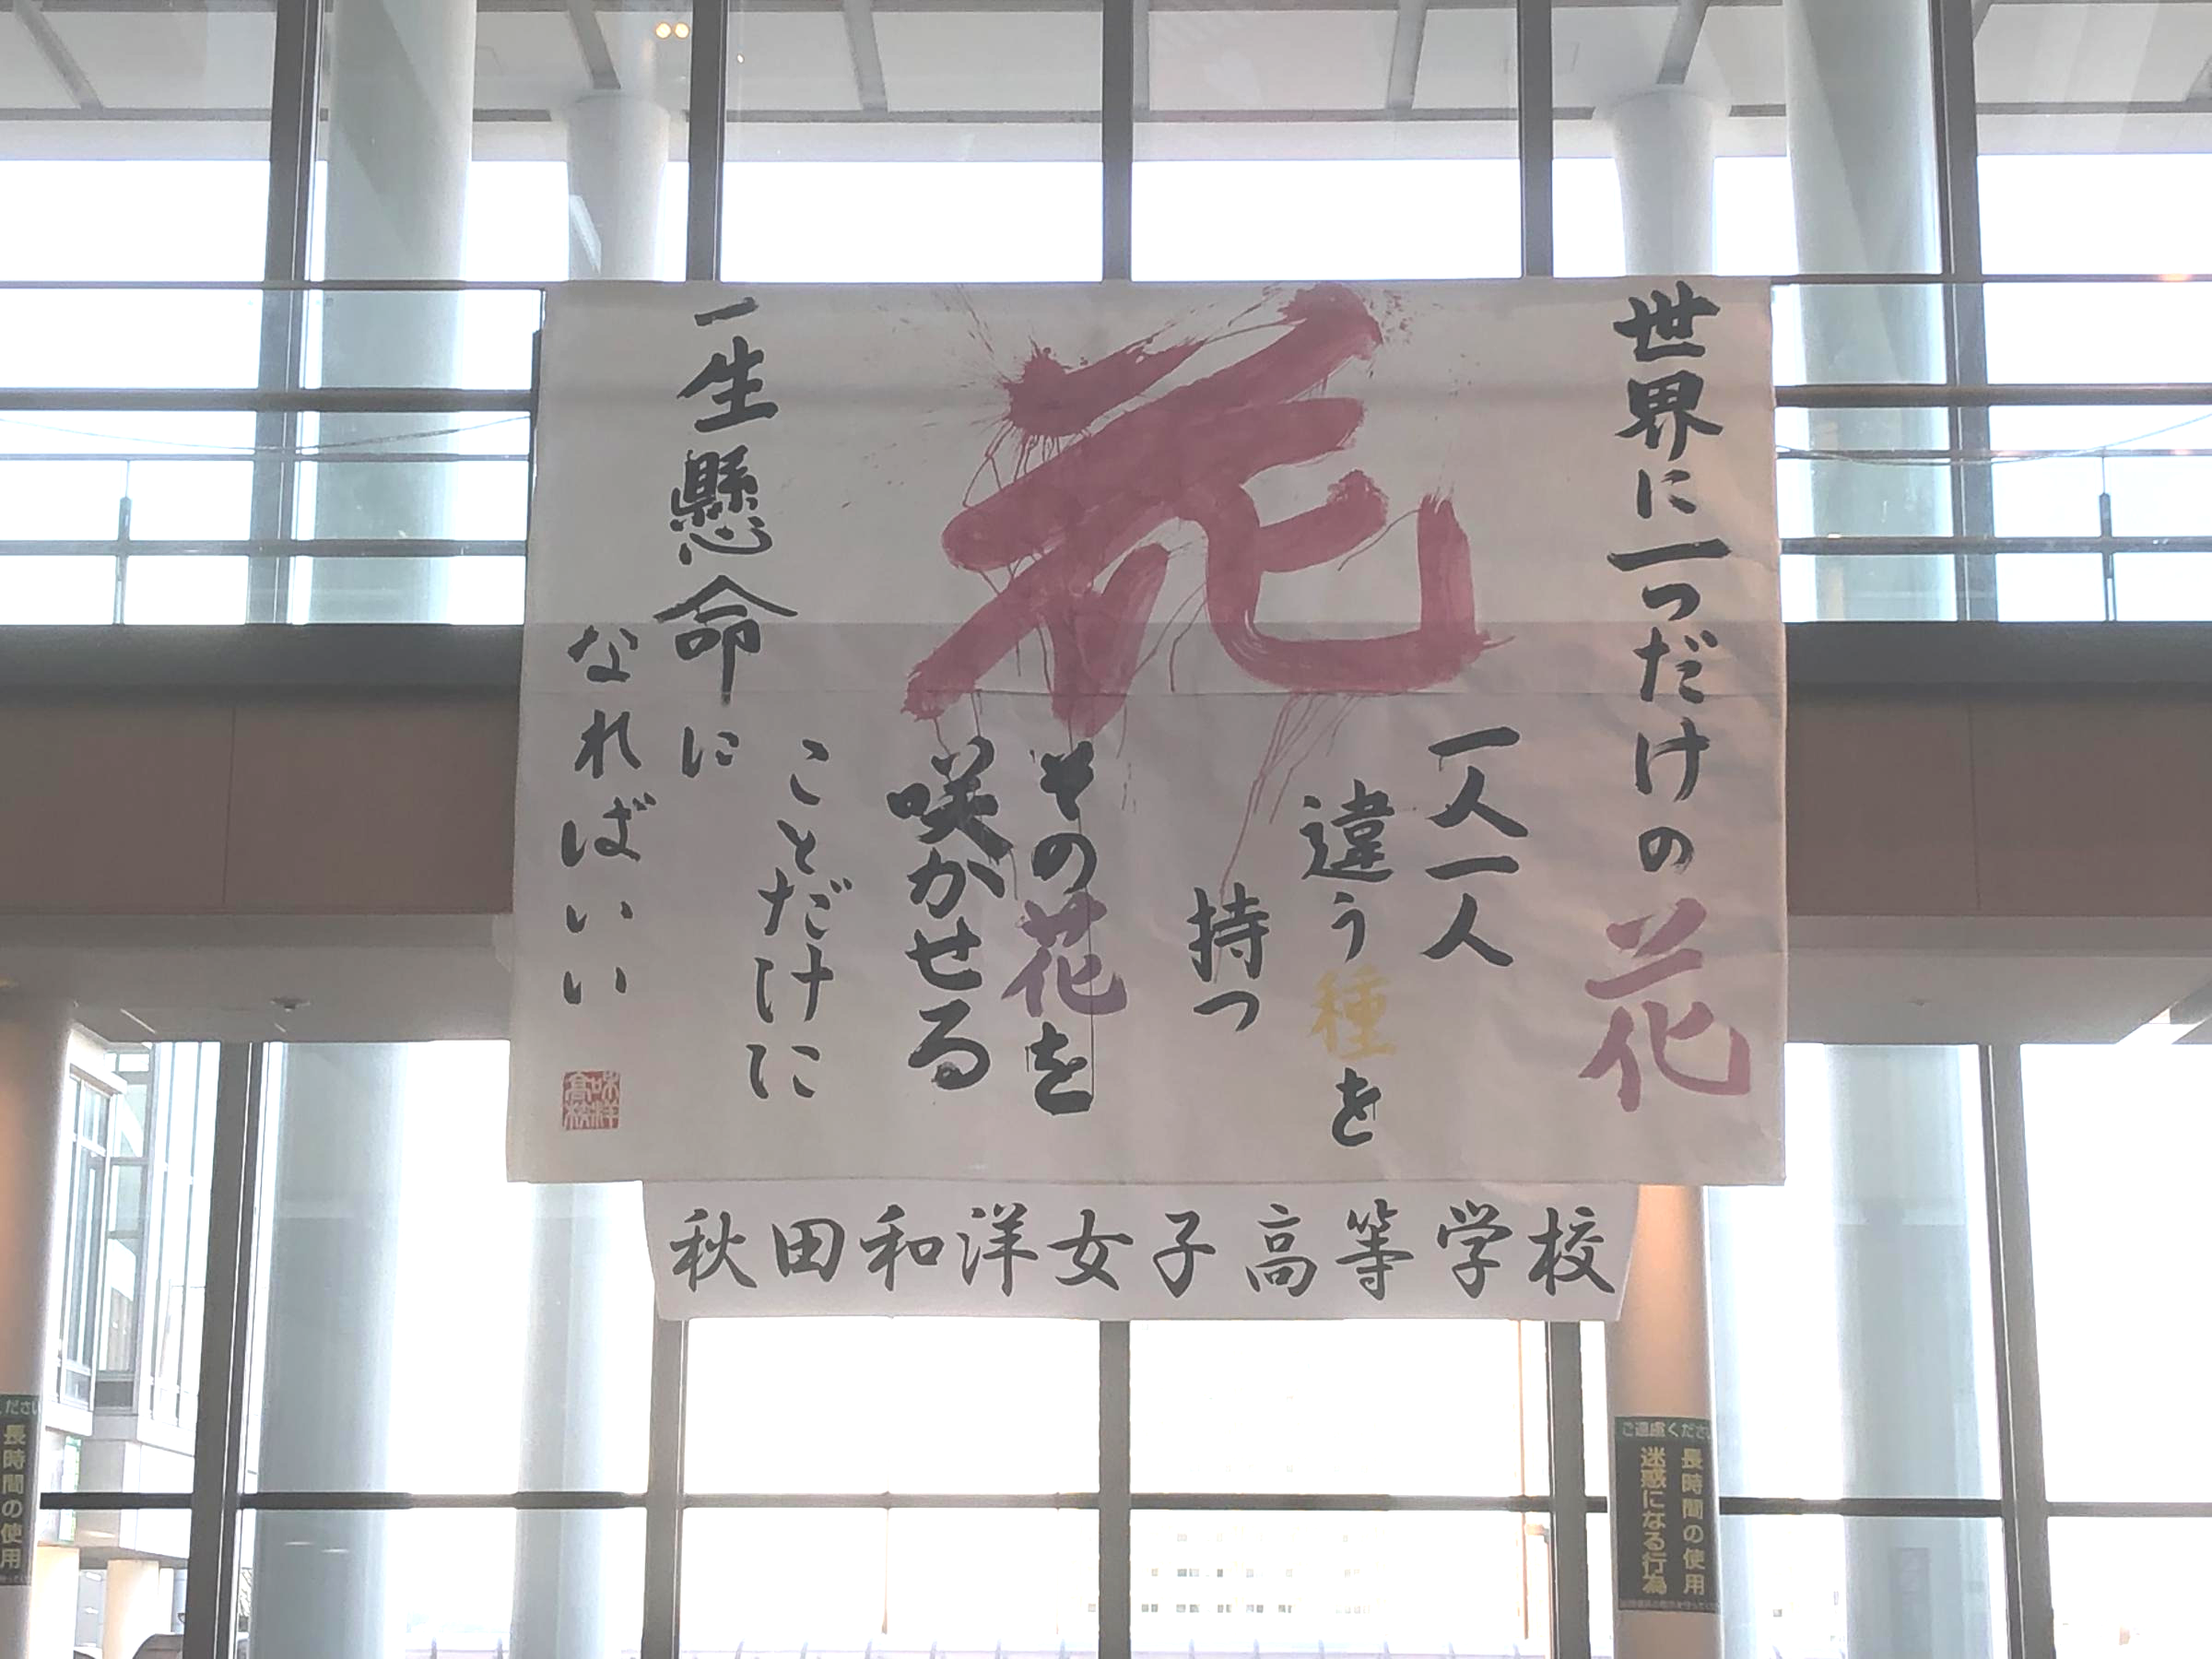 世界に一つだけの花
花
一人一人
違う種を
持つ
その花を
咲かせる
ことだけに
一生懸命に
なればいい
秋田和洋女子高等学校
ください
長時間の使用
ご遠慮ください
長時間の使用
迷惑になる行為